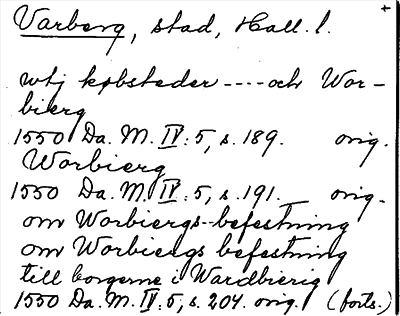 Varberg, stad, Hall. l.
wtj købsteder ---- och Wor-
bierg
1550 Da. M. IV: 5, s. 189. orig.
Worbierg
1550 Da. M. IV: 5, s. 191. orig.
om Worbiergs-befestning
om Worbiergs befestning
till borgerne i Wardbierig
1550 Da. M. IV: 5, s. 204. orig. (forts.)